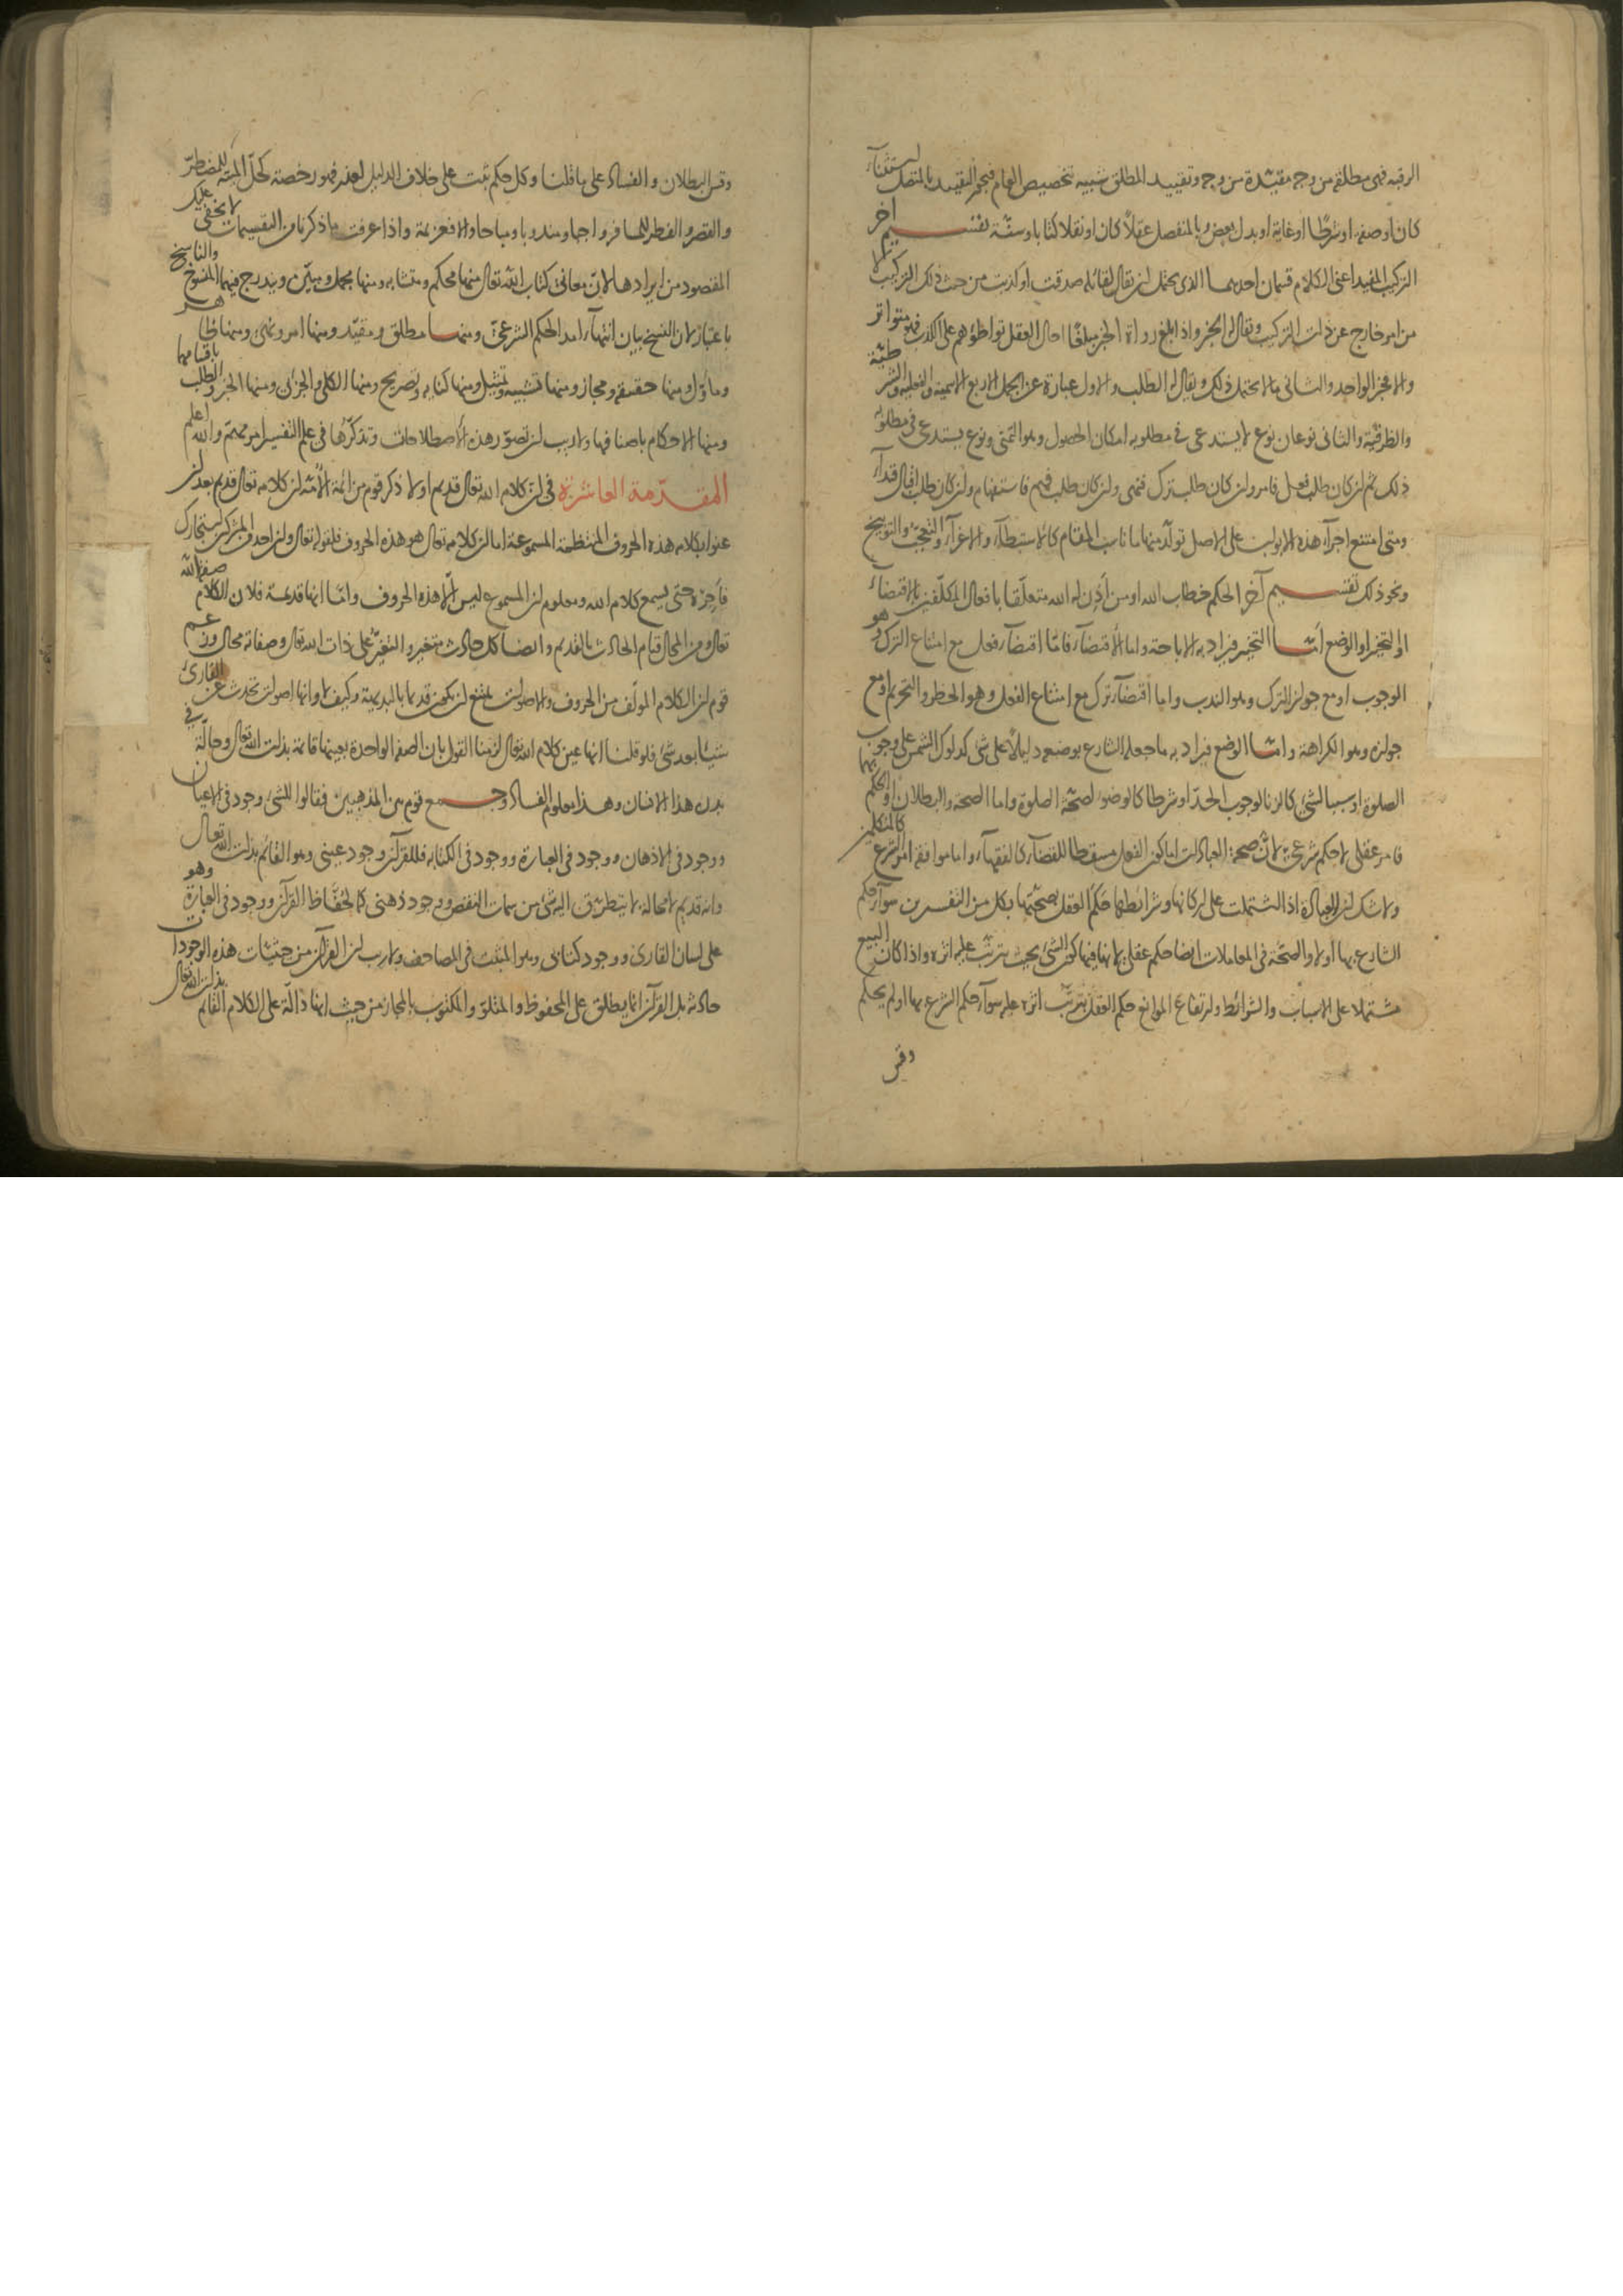 الرقبة فهى مطلقة من وجه مقيّدة من وجه وتقييد المطلق شبيه بتخصيص العام فيجوز التقييد بالمتصل استثناء
كان او صفة او شرطا او غاية او بدل بعض وبالمنفصل عقلا كان او نقلا كتابا او سنّة تقسيم آخر
التركيب المفيد اعنى الكلام قسمان احدهما الذى يحتمل ان يقال لقائله صدقت او كذبت من حيث ذلك التركيب لا
من امر خارج عن ذلك التركيب ويقال له الخبر واذا بلغ رواة الخبر مبلغا احال العقل تواطؤهم على الكذب فهو متواتر
والا فخبر الواحد والثانى ما لا يحتمل ذلك ويقال له الطلب والاول عبارة عن الجمل الاربع الاسمية والفعلية والشرطيّة
والظرفيّة والثانى نوعان نوع لا يستدعى فى مطلوبه امكان الحصول وهو التمنى ونوع يستدعى فى مطلوبه
ذلك ثم ان كان طلب فعل فامر وان كان طلب ترك فنهى وان كان طلب فهم فاستفهام وان كان طلب اقبال فنداء
ومتى امتنع اجراء هذه الابواب على الاصل تولّد منها ما ناسب المقام كالاستبطاء والاغراء والتعجّب والتوبيخ
ونحو ذلك تقسيم آخر الحكم خطاب الله او من أذن له الله متعلّقا بافعال المكلّفين بالاقتضاء
او التخيير او الوضع أمّا التخيير فيراد به الاباحة واما الاقتضاء فامّا اقتضاء فعل مع امتناع الترك وهو
الوجوب او مع جواز الترك وهو الندب واما اقتضاء ترك مع امتناع الفعل وهو الحظر والتحريم او مع
جوازه وهو الكراهة وامّا الوضع فيراد به ما جعله الشارع بوضعه دليلا على شى كدلوك الشمس على وجوب
الصلوة او سببا لشئ كالزنا لوجوب الحدّ او شرطا كالوضوء لصحّة الصلوة واما الصحة والبطلان او الحكم بهما
فامر عقلى لا حكم شرعى لانّ صحة العبادات اما كون الفعل مسقطا للقضاء كالفقهاء واما موافقة امر الشرع كالمتكلمين
ولا شك ان العبادة اذا اشتملت على اركانها وشرائطها حكم العقل بصحّتها بكل من التفسيرين سواء حكم
الشارع بها أو لا والصحّة فى المعاملات ايضا حكم عقلى لانها فيها كون الشئ بحيث يترتّب عليه اثره واذا كان البيع
مشتملا على الاسباب والشرائط وارتفاع الموانع حكم العقل بترتّب اثره عليه سواء حكم الشرع بها او لم يحكم
وقس
وقس البطلان والفساد على ما قلنا وكل حكم ثبت على خلاف الدليل لعذر فهو رخصة كحلّ الميتة للمضطرّ
والقصر والفطر للمسافر واجبا ومندوبا ومباحا والا فعزيمة واذا عرفت ما ذكرنا من التقسيمات لا يخفى عليك
المقصود من ايرادها لانّ معانى كتاب الله تعالى منها محكم ومتشابه ومنها مجمل ومبيّن ويندرج فيها المنسوخ والناسخ
باعتبار لان النسخ بيان انتهاء امد الحكم الشرعىّ ومنها مطلق ومقيّد ومنها امر ونهى ومنها ظاهر
ومأوّل ومنها حقيقة ومجاز ومنها تشبيه وتمثيل ومنها كناية وتصريح ومنها الكلى والجزئى ومنها الخبر والطلب باقسامها
ومنها الاحكام باصنافها ولا ريب ان تصوّر هذه الاصطلاحات وتذكّرها فى علم التفسير امر مهمّ والله اعلم
المقدّمة العاشرة فى ان كلام الله تعالى قديم او لا ذكر قوم من ائمة الامّة ان كلامه تعالى قديم بعد ان
عنوا بكلامه هذه الحروف المنتظمة المسموعة اما ان كلامه تعالى هو هذه الحروف فلقوله تعالى وان احد من المشركين استجارك
فأجره حتى يسمع كلام الله ومعلوم ان المسموع ليس الّا هذه الحروف وامّا انها قديمة فلان الكلام صفة الله
تعالى ومن المحال قيام الحادث بالقديم وايضا كل حادث متغير والتغيّر على ذات الله تعالى وصفاته محال وزعم
قوم ان الكلام المؤلّف من الحروف والاصوات يمتنع ان يكون قديما بالبديهة وكيف لا وانها اصوات تحدث عن القارئ
شيئا بعد شئ فلو قلنا انها عين كلام الله تعالى لزمنا القول بان الصفة الواحدة بعينها قائمة بذات الله تعالى وحالّة فى
بدن هذا الانسان وهذا معلوم الفساد وجمع قوم بين المذهبين فقالوا للشئ وجود فى الاعيان
ووجود فى الاذهان ووجود فى العبارة ووجود فى الكتابة فللقرآن وجود عينى وهو القائم بذات الله تعالى
وانه قديم لا محالة لا يتطرّق اليه شئ من سمات النقص ووجود ذهنى كما لحفّاظ القرآن ووجود فى العبارة وهو
على لسان القارى ووجود كتابى وهو المثبت فى المصاحف ولا ريب ان القرآن من حيثيات هذه الوجودات
حادثة بل القرآن انما يطلق على المحفوظ والمتلوّ والمكتوب بالمجاز من حيث انها دالّة على الكلام القائم بذات الله تعالى